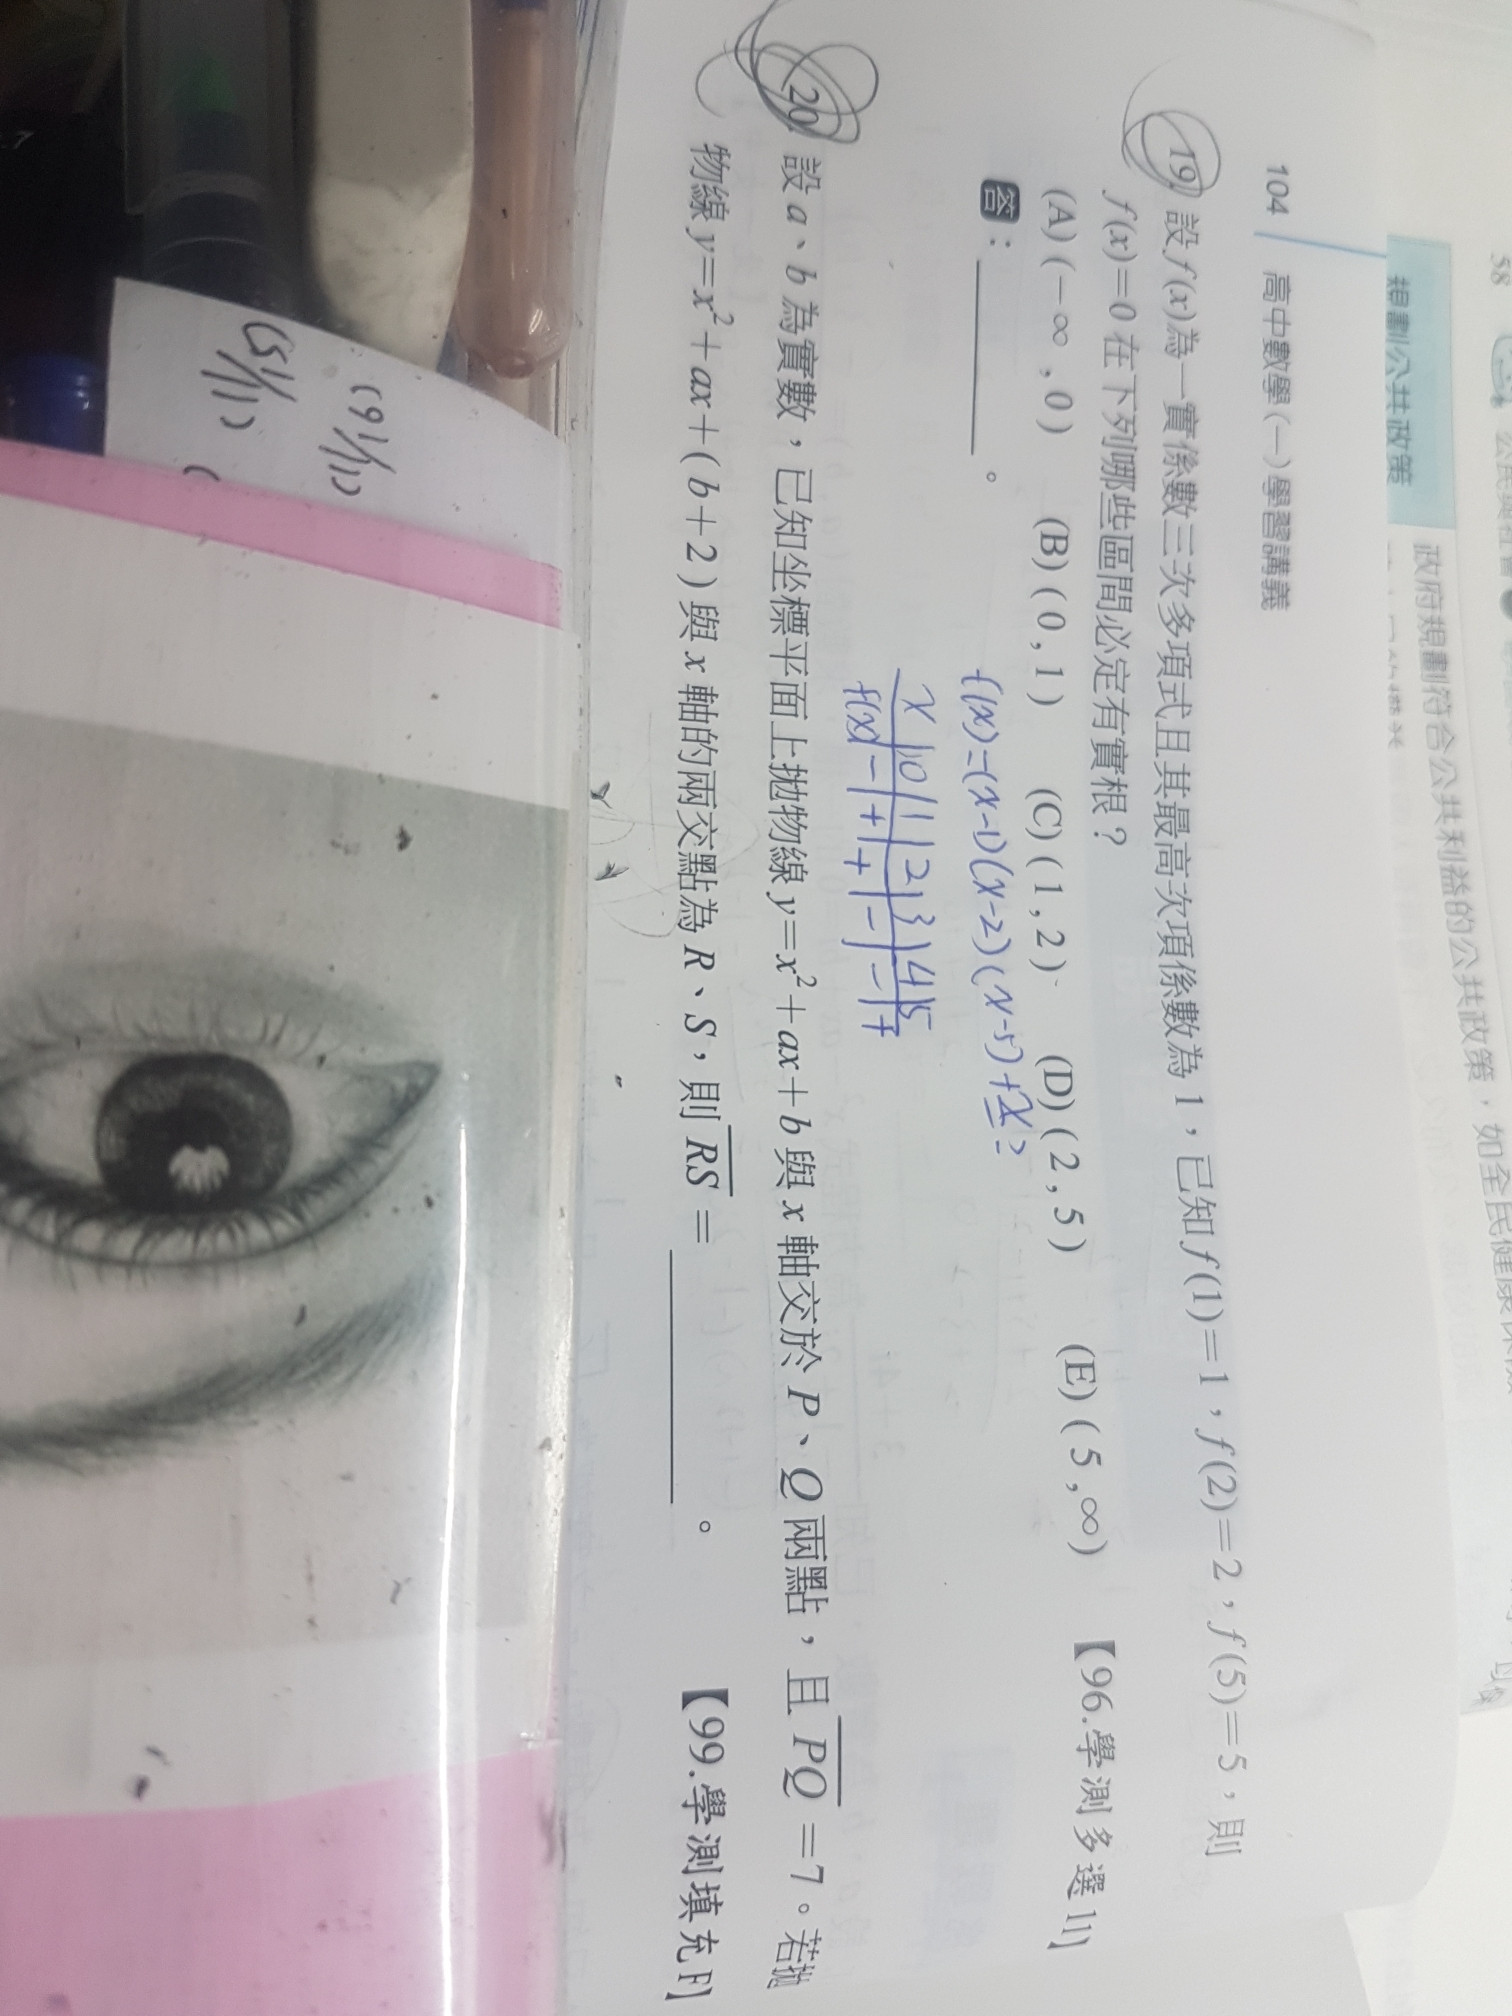 規劃公共政策
政府規劃符合公共利益的公共政策，如全民健康
104 高中數學(一)學習講義
19 設 f(x)為一實係數三次多項式且其最高次項係數為 1，已知 f(1)=1，f(2)=2，f(5)=5，則
f(x)=0 在下列哪些區間必定有實根？
(A)(−∞,0) (B)(0,1) (C)(1,2) (D)(2,5) (E)(5,∞) 【96.學測多選11】
答：＿＿＿＿。
f(x)=(x-1)(x-2)(x-5)+x
x 0 1 2 3 4 5
f(x) - + + - - +
20 設 a、b 為實數，已知坐標平面上拋物線 y=x²+ax+b 與 x 軸交於 P、Q 兩點，且 PQ=7。若拋
物線 y=x²+ax+(b+2)與 x 軸的兩交點為 R、S，則 RS=＿＿＿＿。 【99.學測填充F】
(9/11)
(5/11)